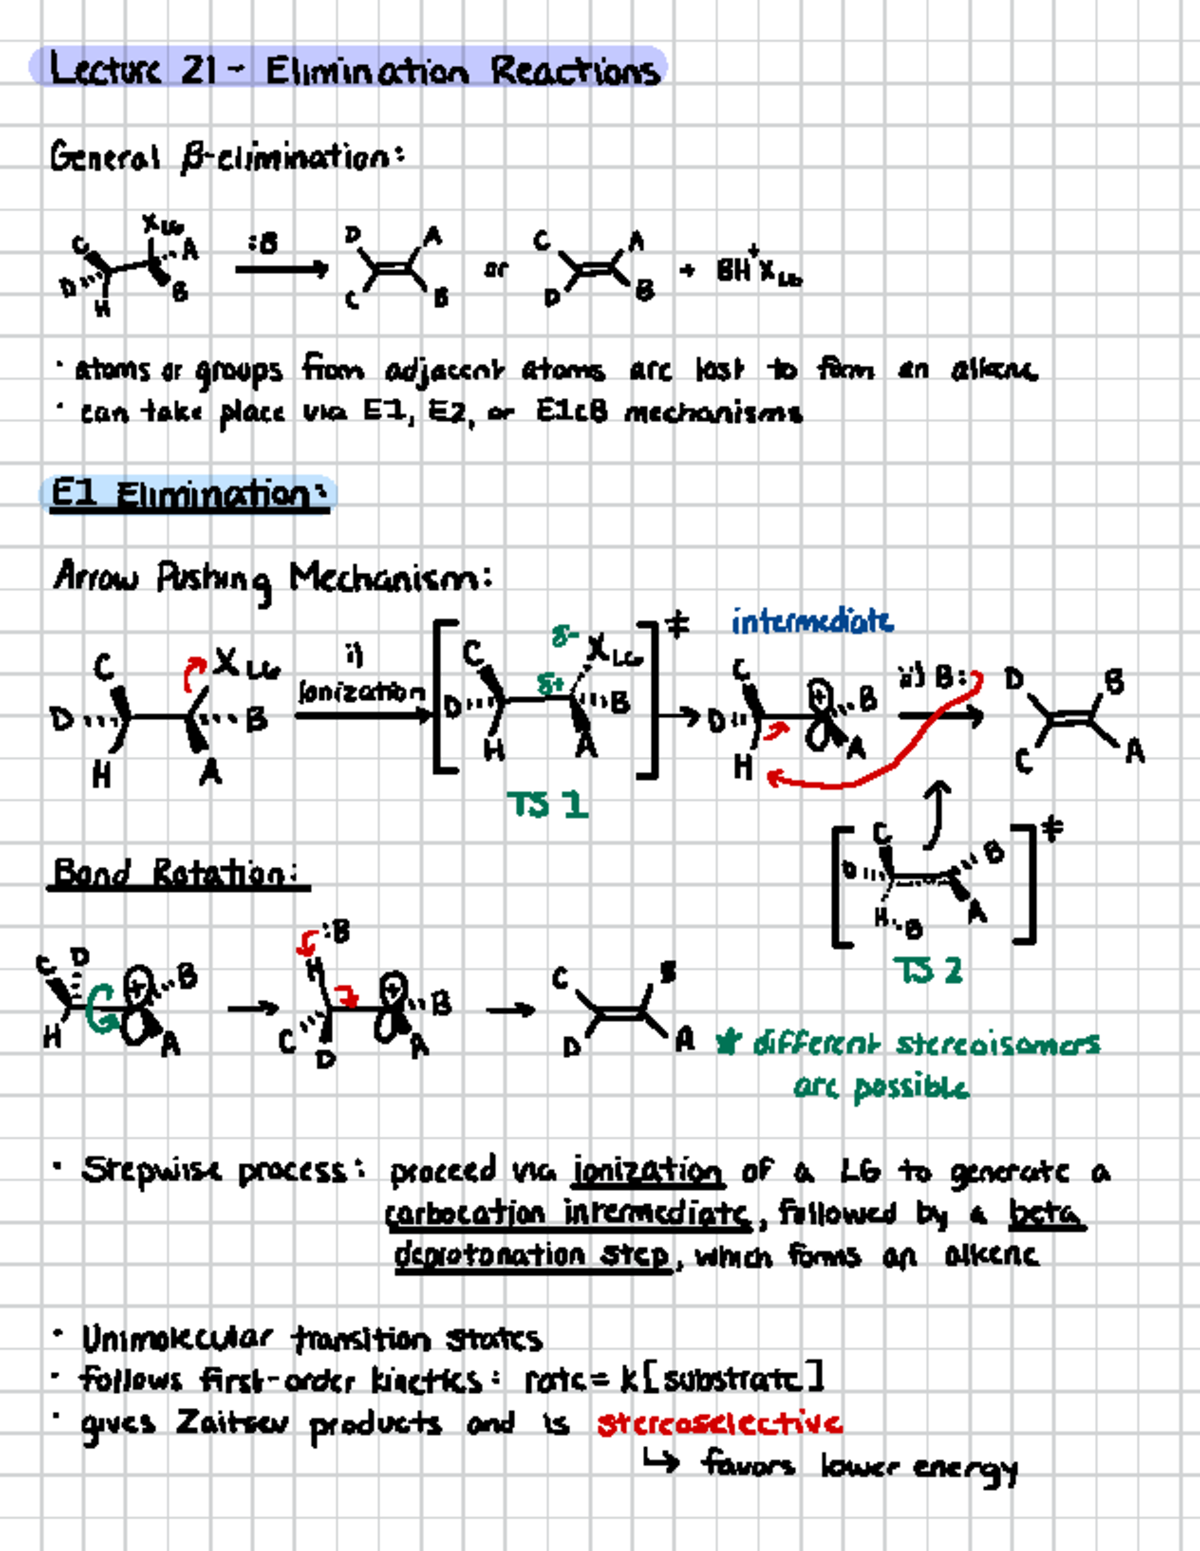 Lecture 21 - Elimination Reactions
General β-elimination:
C D H X LG A B :B D C A B or C D A B + BH⁺ X LG
· atoms or groups from adjacent atoms are lost to form an alkene
· can take place via E1, E2, or E1cB mechanisms
E1 Elimination:
Arrow Pushing Mechanism:
intermediate
C D H X LG B A i) Ionization [ C D H δ- X LG δ+ B A ] ‡ C D H + B A ii) B: D C B A
TS 1
[ C D H B B A ] ‡
TS 2
Bond Rotation:
C D H + B A :B H C D + B A C D B A
* different stereoisomers
are possible
· Stepwise process: proceed via ionization of a LG to generate a
carbocation intermediate, followed by a beta
deprotonation step, which forms an alkene
· Unimolecular transition states
· follows first-order kinetics: rate = k[substrate]
· gives Zaitsev products and is stereoselective
↳ favors lower energy